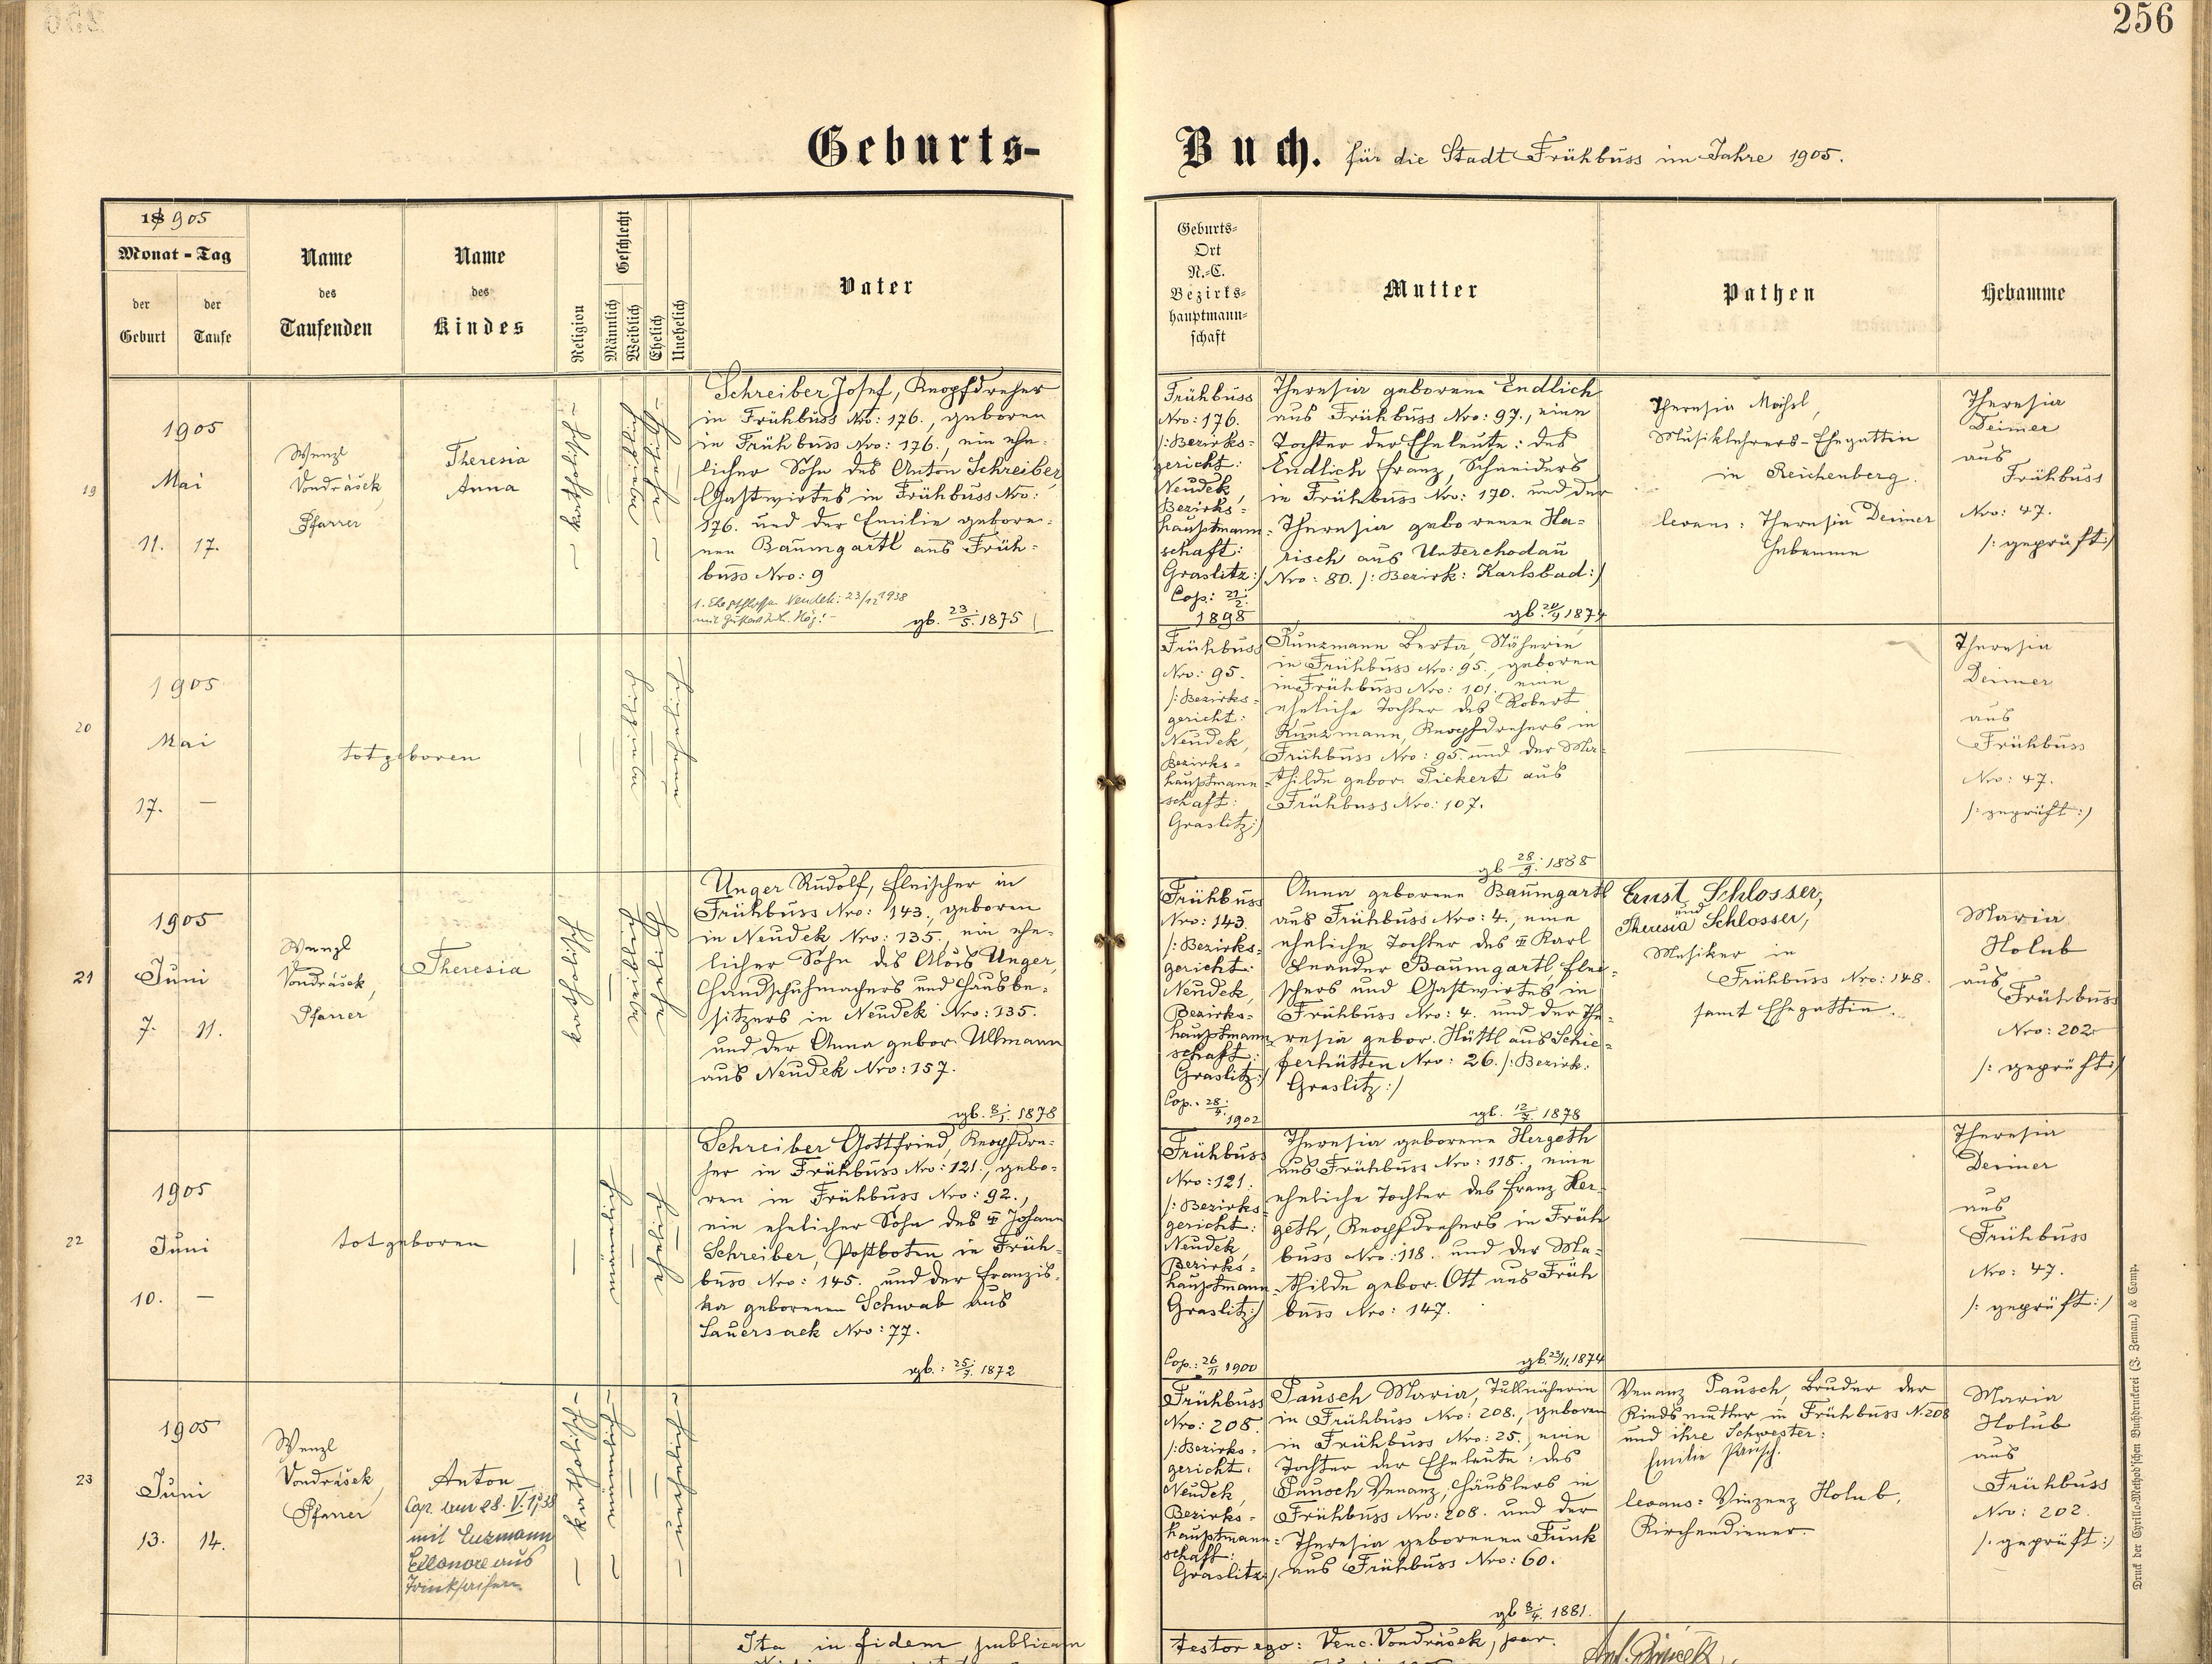 256
Geburts-
Buch. für die Stadt Frühbuss im Jahre 1905.
18 905
Monat - Tag
der Geburt
der Taufe
Name des Taufenden
Name des Kindes
Religion
Geschlecht
Männlich
Weiblich
Ehelich
Unehelich
Vater
Geburts-
Ort
N.-C.
Bezirks-
hauptmann-
schaft
Mutter
Pathen
Hebamme
19
1905
Mai
11. 17.
Wenzl
Vondrášek,
Pfarrer
Theresia
Anna
Schreiber Josef, Knopfdreher
in Frühbuss Nro: 176., geboren
in Frühbuss Nro: 176., ein ehe-
licher Sohn des Anton Schreiber,
Gastwirtes in Frühbuss Nro:
176. und der Emilie gebore-
nen Baumgartl aus Früh-
buss Nro: 9
gb. 23/5. 1875
Frühbuss
Nro: 176.
/: Bezirks-
gericht:
Neudek,
Bezirks-
hauptmann-
schaft:
Graslitz:/
Cop: 22/2.
1898
Theresia geborene Endlich
aus Frühbuss Nro: 97., eine
Tochter der Eheleute: des
Endlich Franz, Schneiders
in Frühbuss Nro: 170. und der
Theresia geborenen Ha-
risch aus Unterchodau
Nro: 80. /: Bezirk: Karlsbad:/
gb. 20/9 1874
Theresia Möhsl,
Musiklehrers-Ehegattin
in Reichenberg.
levans: Theresia Deimer
Hebamme
Theresia
Deimer
aus
Frühbuss
Nro: 47.
/: geprüft:/
20
1905
Mai
17. —
totgeboren
Frühbuss
Nro: 95.
/: Bezirks-
gericht:
Neudek,
Bezirks-
hauptmann-
schaft:
Graslitz:/
Kunzmann Berta, Näherin
in Frühbuss Nro: 95., geboren
in Frühbuss Nro: 101. eine
eheliche Tochter des Robert
Kunzmann, Knopfdrehers in
Frühbuss Nro: 95. und der Ma-
thilde gebor. Pickert aus
Frühbuss Nro: 107.
gb 28/9. 1888
Theresia
Deimer
aus
Frühbuss
Nro: 47.
/: geprüft:/
21
1905
Juni
7. 11.
Wenzl
Vondrášek,
Pfarrer
Theresia
Unger Rudolf, Fleischer in
Frühbuss Nro: 143., geboren
in Neudek Nro: 135., ein ehe-
licher Sohn des Alois Unger,
Handschuhmachers und Hausbe-
sitzers in Neudek Nro: 135.
und der Anna gebor. Ullmann
aus Neudek Nro: 157.
gb. 8/1. 1878
Frühbuss
Nro: 143.
/: Bezirks-
gericht:
Neudek,
Bezirks-
hauptmann-
schaft:
Graslitz:/
Cop. 28/4. 1902
Anna geborene Baumgartl
aus Frühbuss Nro: 4., eine
eheliche Tochter des II Karl
Leander Baumgartl, Flei-
schers und Gastwirtes in
Frühbuss Nro: 4. und der The-
resia gebor. Hüttl aus Schie-
ferhütten Nro: 26. /: Bezirk:
Graslitz:/
gb. 12/7. 1878
Ernst Schlosser,
und
Theresia Schlosser,
Musiker in
Frühbuss Nro: 148.
samt Ehegattin.
Maria
Holub
aus
Frühbuss
Nro: 202
/: geprüft:/
22
1905
Juni
10. —
totgeboren
Schreiber Gottfried, Knopfdre-
her in Frühbuss Nro: 121., gebo-
ren in Frühbuss Nro: 92.,
ein ehelicher Sohn des II Johann
Schreiber, Postboten in Früh-
buss Nro: 145. und der Franzis-
ka geborenen Schwab aus
Sauersack Nro: 77.
gb.: 25/7. 1872
Frühbuss
Nro: 121.
/: Bezirks-
gericht:
Neudek,
Bezirks-
hauptmann-
Graslitz:/
Cop.: 26/11 1900
Theresia geborene Hergeth
aus Frühbuss Nro: 118., eine
eheliche Tochter des Franz Her-
geth, Knopfdrehers in Früh-
buss Nro: 118. und der Ma-
thilde gebor. Ott aus Früh
buss Nro: 147.
gb. 23/11. 1874
Theresia
Deimer
aus
Frühbuss
Nro: 47.
/: geprüft:/
23
1905
Juni
13. 14.
Wenzl
Vondrášek,
Pfarrer
Anton
Cop. am 28. V. 1938
mit Enzmann
Elleonore aus
Trinkseifen
Frühbuss
Nro: 208.
/: Bezirks-
gericht:
Neudek,
Bezirks-
hauptmann-
schaft:
Graslitz:/
Pausch Maria, Tüllnäherin
in Frühbuss Nro: 208., geboren
in Frühbuss Nro: 25., eine
Tochter der Eheleute: des
Pausch Venanz, Häuslers in
Frühbuss Nro: 208. und der
Theresia geborenen Funk
aus Frühbuss Nro: 60.
gb 8/4. 1881.
Venanz Pausch, Bruder der
Kindsmutter in Frühbuss N. 208
und ihre Schwester:
Emilie Pausch.
levans: Vinzenz Holub,
Kirchendiener.
Maria
Holub
aus
Frühbuss
Nro: 202.
/: geprüft:/
Ita in fidem publicam
testor ego: Venc. Vondrášek, par.
Druck der Cyrillo-Method'schen Buchdruckerei (J. Zeman) & Comp.